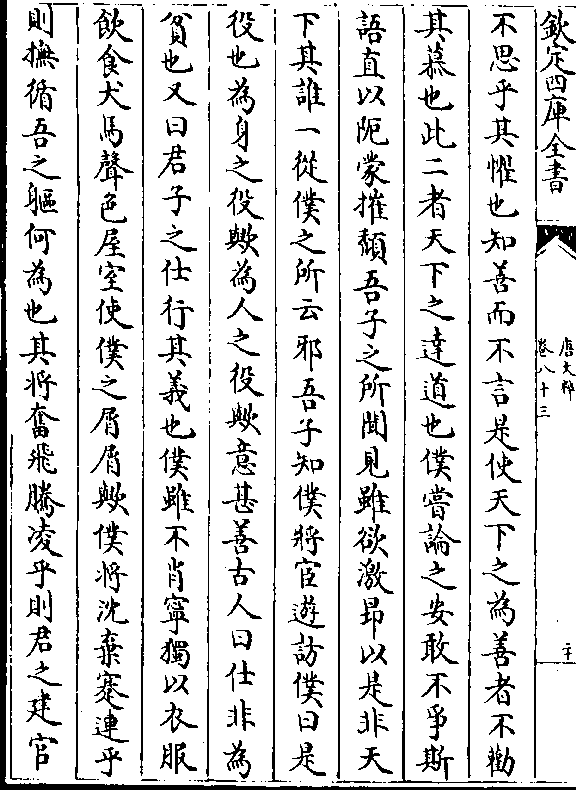 欽定四庫全書
唐文粹
卷八十三
不思乎其懼也知善而不言是使天下之為善者不勸
其慕也此二者天下之達道也僕嘗論之安敢不爭斯
語直以阨蒙摧頹吾子之所聞見雖欲激昂以是非天
下其誰一從僕之所云邪吾子知僕將宦遊訪僕曰是
役也為身之役歟為人之役歟意甚善古人曰仕非為
貧也又曰君子之仕行其義也僕雖不肖寧獨以衣服
飲食犬馬聲色屋室使僕之屑屑歟僕將沈棄蹇連乎
則撫循吾之軀何為也其將奮飛騰凌乎則君之建官